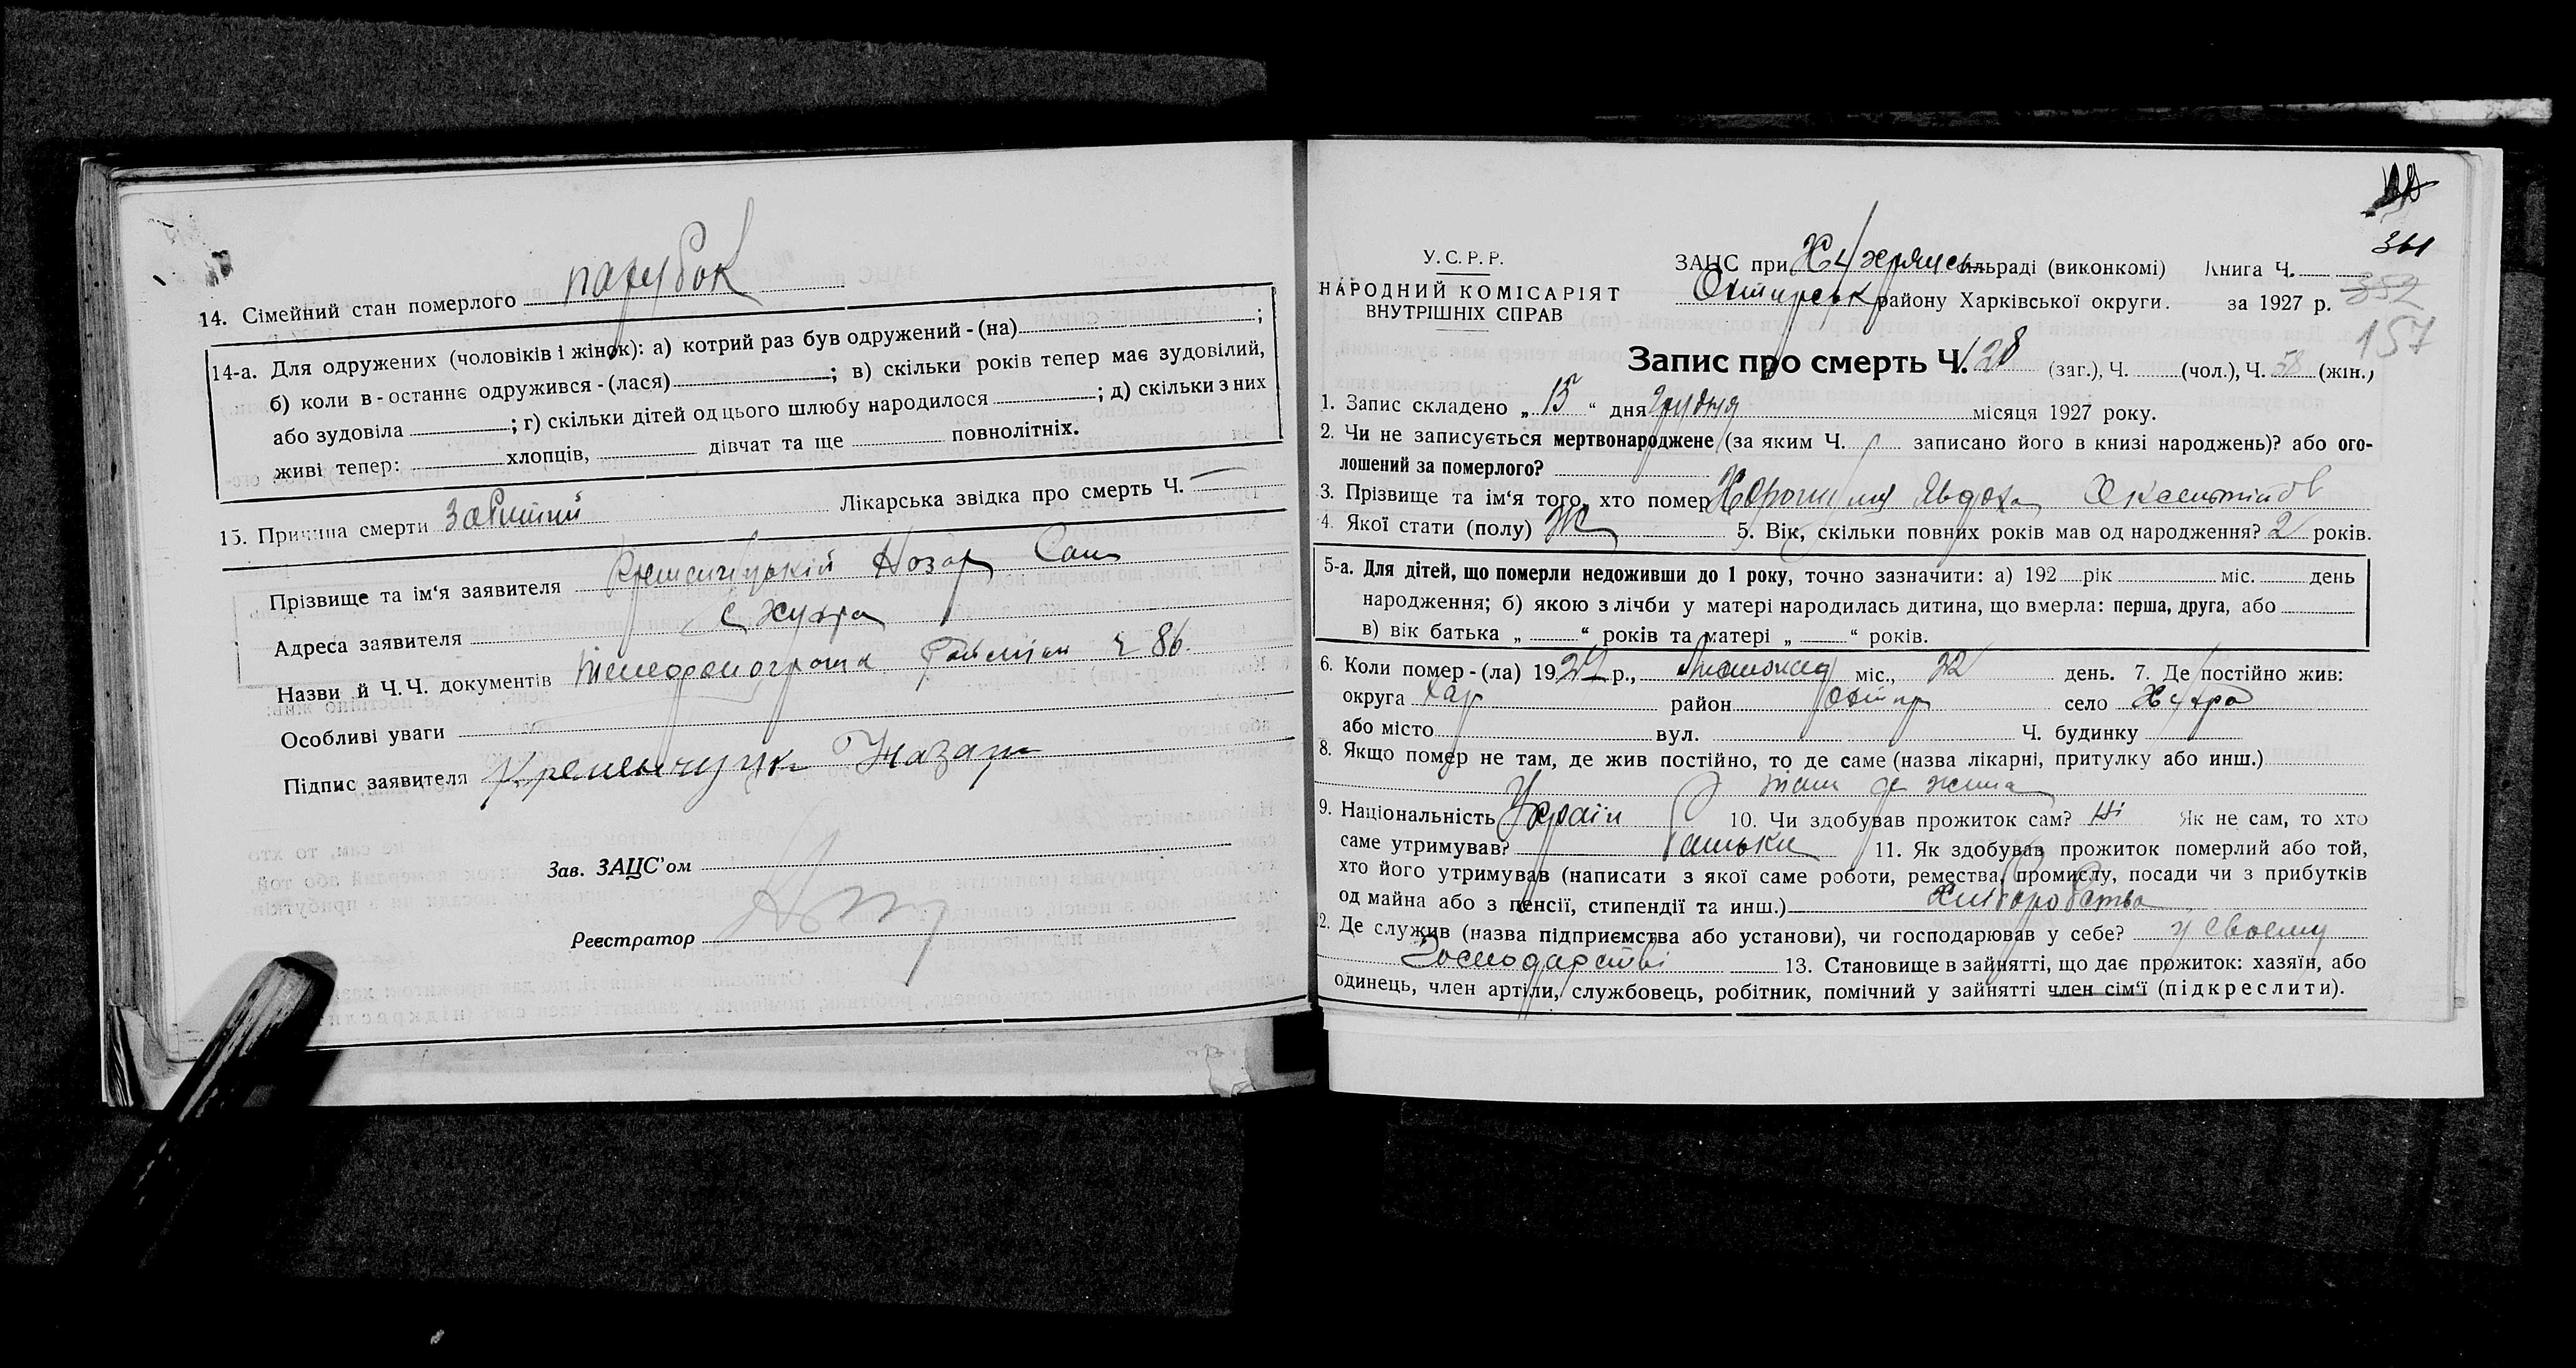 14. Сімейний стан померлого парубок
14-а. Для одружених (чоловіків і жінок): а) котрий раз був одружений - (на) ;
б) коли в-останнє одружився - (лася) ; в) скільки років тепер має зудовілий,
або зудовіла ; г) скільки дітей од цього шлюбу народилося ; д) скільки з них
живі тепер: хлопців, дівчат та ще повнолітніх.
15. Причина смерти Лікарська звідка про смерть Ч. —
Прізвище та ім'я заявителя Назар
Адреса заявителя с Хухра
Назви й Ч.Ч. документів телефонограма 86.
Особливі уваги
Підпис заявителя Назар
Зав. ЗАЦС'ом
Реєстратор
361
У.С.Р.Р.
НАРОДНИЙ КОМІСАРІЯТ
ВНУТРІШНІХ СПРАВ
ЗАЦС при Хухрянсь сільраді (виконкомі) Книга Ч.
Охтирськ району Харківської округи. за 1927 р. 352
157
Запис про смерть Ч. 128 (заг.), Ч. (чол.), Ч. 58 (жін.)
1. Запис складено „ 15 “ дня Грудня місяця 1927 року.
2. Чи не записується мертвонароджене (за яким Ч. записано його в книзі народжень)? або ого-
лошений за померлого?
3. Прізвище та ім'я того, хто помер Явдоха
4. Якої стати (полу) Ж 5. Вік, скільки повних років мав од народження? 2 років.
5-а. Для дітей, що померли недоживши до 1 року, точно зазначити: а) 192 рік міс. день
народження; б) якою з лічби у матері народилась дитина, що вмерла: перша, друга, або
в) вік батька „ “ років та матері „ “ років.
6. Коли помер - (ла) 1927 р., Листопад міс., 22 день. 7. Де постійно жив:
округа Хар район Охтир село Хухра
або місто вул. Ч. будинку
8. Якщо помер не там, де жив постійно, то де саме (назва лікарні, притулку або инш.)
там де жила
9. Національність Україн 10. Чи здобував прожиток сам? Ні Як не сам, то хто
саме утримував? батьки 11. Як здобував прожиток померлий або той,
хто його утримував (написати з якої саме роботи, ремества, промислу, посади чи з прибутків
од майна або з пенсії, стипендії та инш.) Хліборобства
12. Де служив (назва підприємства або установи), чи господарював у себе? у своєму
господарстві 13. Становище в зайнятті, що дає прожиток: хазяїн, або
одинець, член артіли, службовець, робітник, помічний у зайнятті член сім'ї (підкреслити).